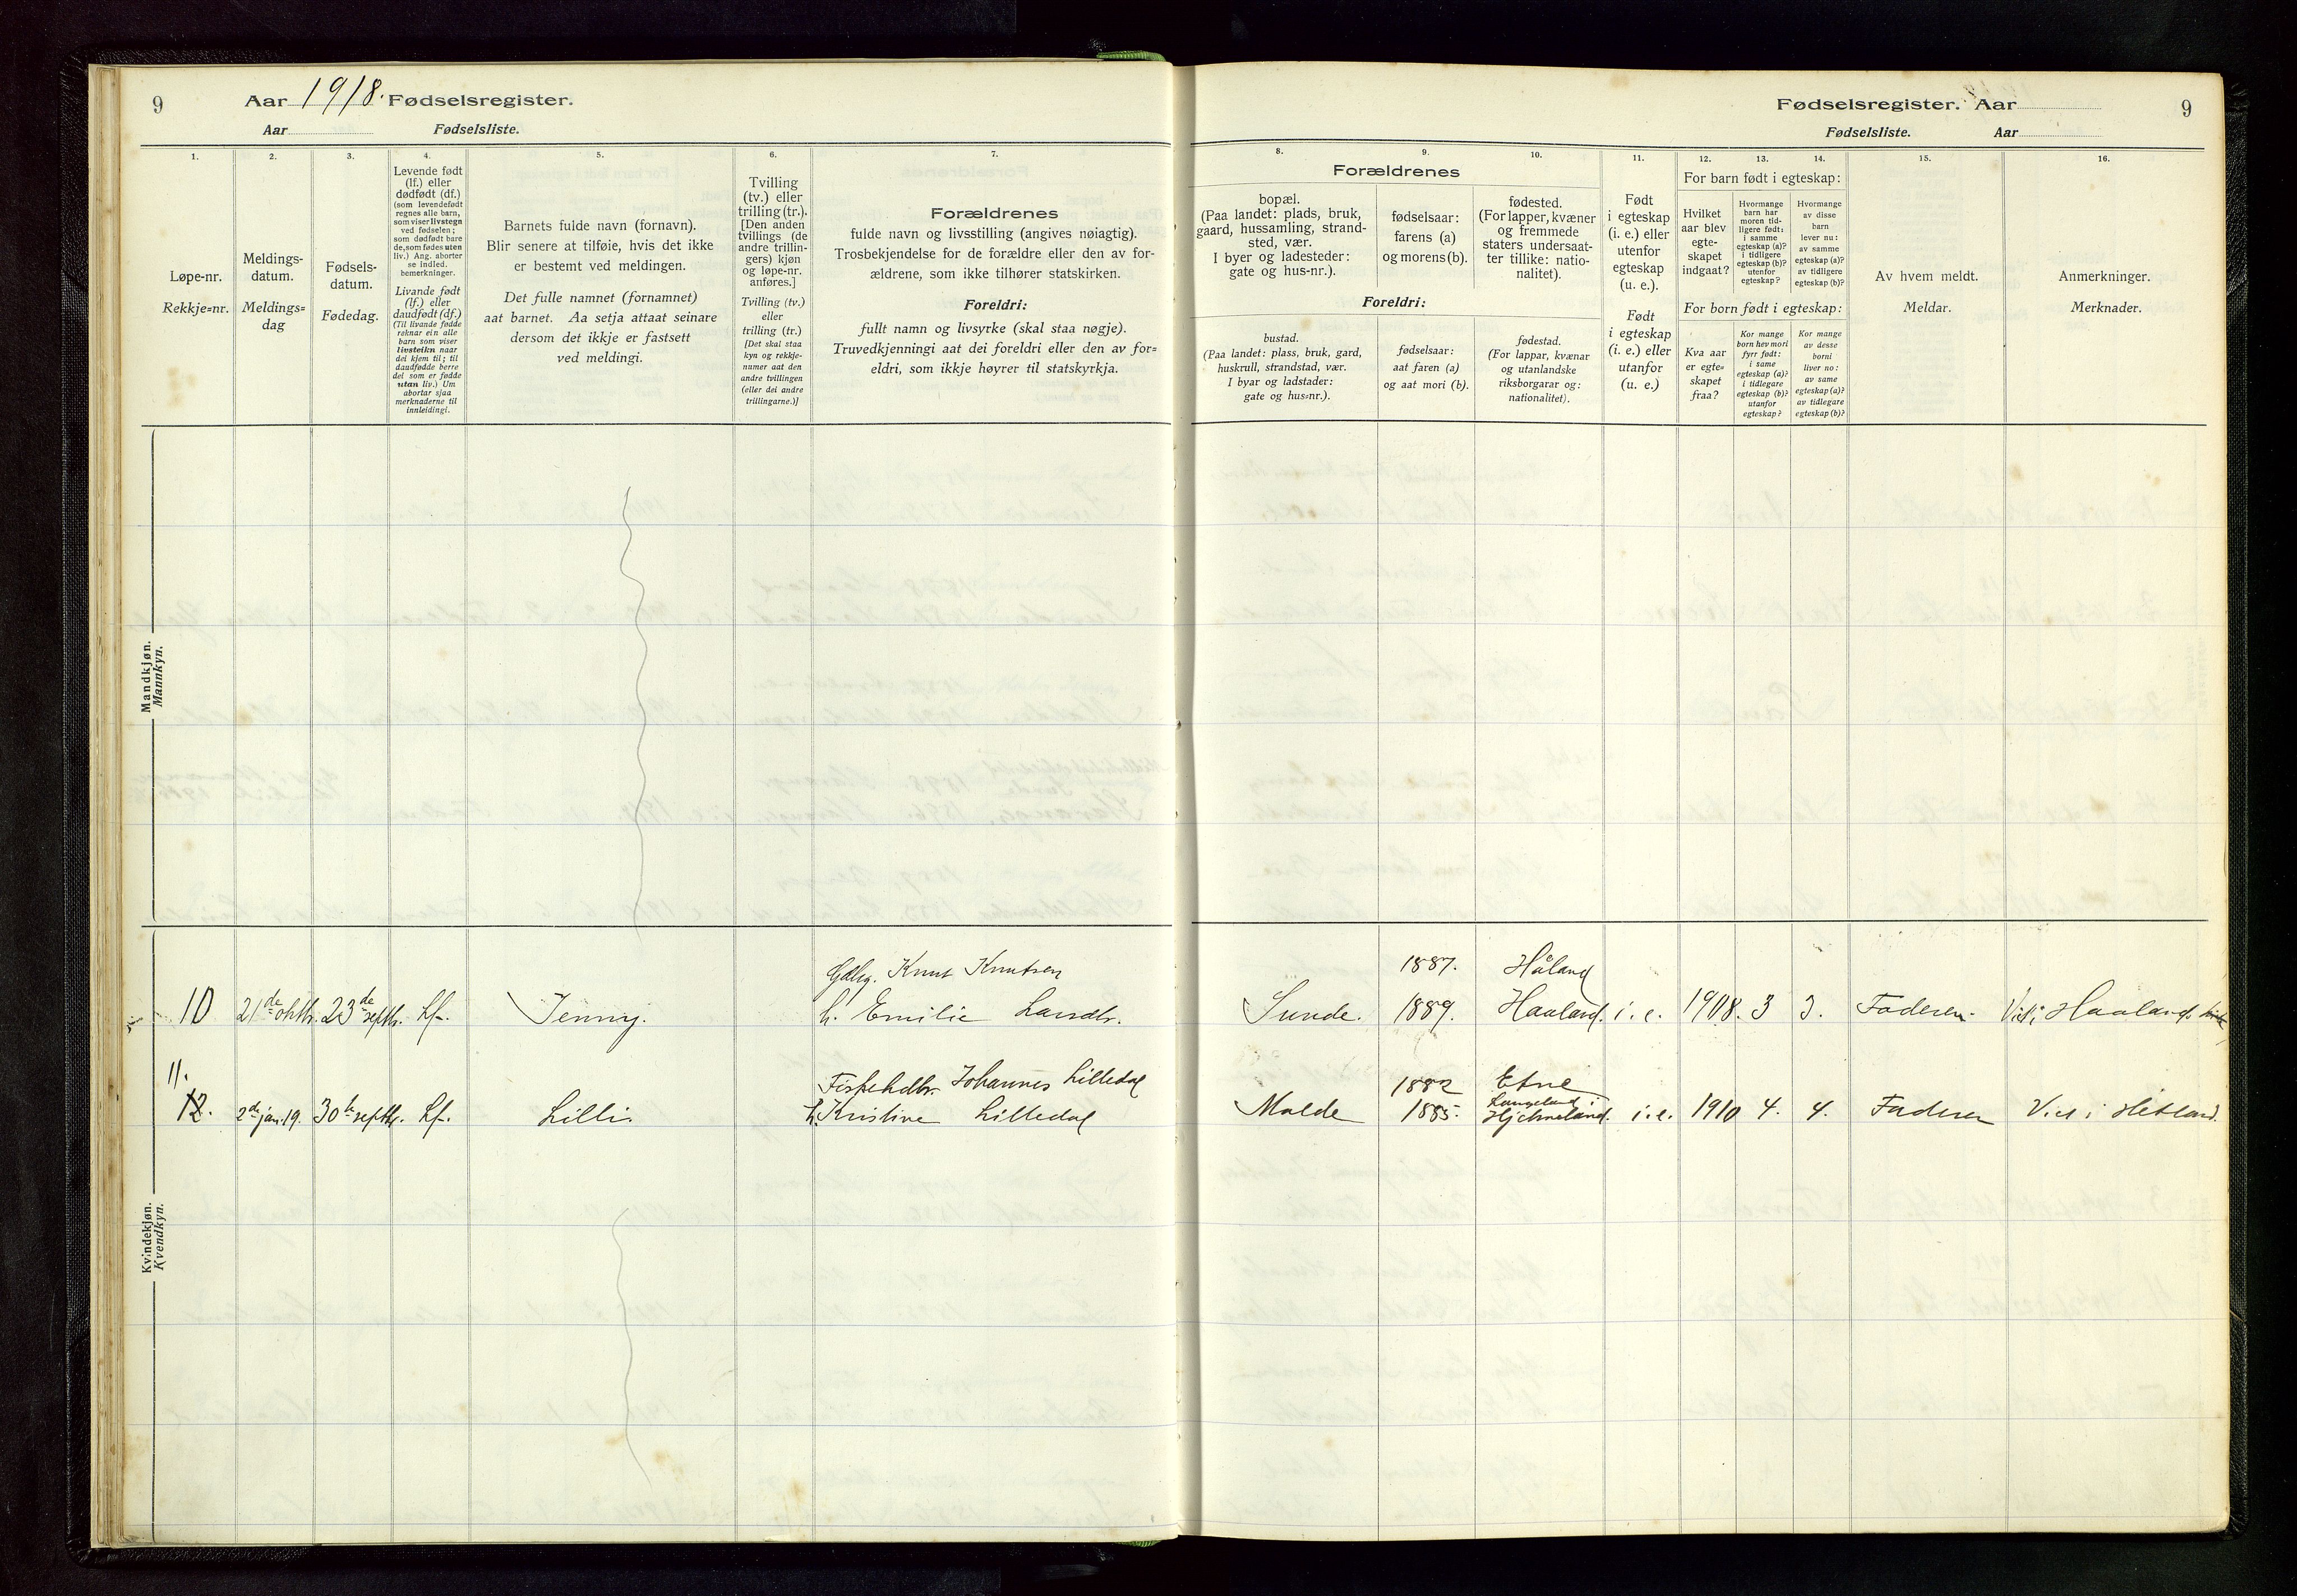 9
Aar 1918. Fødselsregister.
Aar Fødselsliste.
1.
Løpe-nr.
Rekkje-nr.
2.
Meldings-
datum.
Meldings-
dag
3.
Fødsels-
datum.
Fødedag.
4.
Levende født
(lf.) eller
dødfødt (df.)
(som levendefødt
regnes alle barn,
som viser livstegn
ved fødselen;
som dødfødt bare
de, som fødes uten
liv.) Ang. aborter
se indled.
bemerkninger.
Livande født
(lf.) eller
daudfødt (df.)
(Til livande fødde
reknar ein alle
barn som viser
livsteikn naar
dei kjem til; til
daudfødde berre
dei som er fødde
utan liv.) Um
abortar sjaa
merknaderne til
innleidingi.
5.
Barnets fulde navn (fornavn).
Blir senere at tilføie, hvis det ikke
er bestemt ved meldingen.
Det fulle namnet (fornamnet)
aat barnet. Aa setja attaat seinare
dersom det ikkje er fastsett
ved meldingi.
6.
Tvilling
(tv.) eller
trilling (tr.).
[Den anden
tvillings (de
andre trillin-
gers) kjøn
og løpe-nr.
anføres.]
Tvilling (tv.)
eller
trilling (tr.)
[Det skal staa
kyn og rekkje-
numer aat den
andre tvillingen
(eller dei andre
trillingarne.)]
7.
Forældrenes
fulde navn og livsstilling (angives nøiagtig).
Trosbekjendelse for de forældre eller den av for-
ældrene, som ikke tilhører statskirken.
Foreldri:
fullt namn og livsyrke (skal staa nøgje).
Truvedkjenningi aat dei foreldri eller den av for-
eldri, som ikkje høyrer til statskyrkja.
Mandkjøn.
Mannkyn.
Kvindekjøn.
Kvendkyn.
Fødselsregister. Aar
9
Fødselsliste. Aar
Forældrenes
8.
bopæl.
(Paa landet: plads, bruk,
gaard, hussamling, strand-
sted, vær.
I byer og ladesteder:
gate og hus-nr.).
9.
fødselsaar:
farens (a)
og morens (b).
10.
fødested.
(For lapper, kvæner
og fremmede
staters undersaat-
ter tillike: natio-
nalitet).
Foreldri:
bustad.
(Paa landet: plass, bruk, gard,
huskrull, strandstad, vær.
I byar og ladstader:
gate og hus-nr.).
fødselsaar:
aat faren (a)
og aat mori (b).
fødestad.
(For lappar, kvænar
og utanlandske
riksborgarar og:
nationalitet).
11.
Født
i egteskap
(i. e.) eller
utenfor
egteskap
(u. e.).
Født
i egteskap
(i. e.) eller
utanfor
(u. e.)
12. 13. 14.
For barn født i egteskap:
Hvilket
aar blev
egte-
skapet
indgaat?
Hvormange
barn har
moren tid-
ligere født:
i samme
egteskap (a)?
i tidligere
egteskap (b)?
utenfor
egteskap?
Hvormange
av disse
barn
lever nu:
av samme
egteskap (a)?
av tidligere
egteskap (b)?
For born født i egteskap:
Kva aar
er egte-
skapet
fraa?
Kor mange
born hev mori
fyrr født:
i same
egteskap (a)?
i tidlegare
egteskap (b)?
utanfor
egteskap?
Kor mange
av desse
borni
liver no:
av same
egteskap (a)?
av tidlegare
egteskap (b)?
15.
Av hvem meldt.
Meldar.
16.
Anmerkninger.
Merknader.
Knut Knutsen 1887. Håland
10 21de oktbr. 23de septbr. Lf. Jenny. h. Emilie Landr. Sunde. 1889. Haaland. i. e. 1908. 3 3. Faderen. Viet i Haaland
11. Johannes Lilledal 1882 Etne
12. 2de jan. 19. 30te septbr. Lf. Lilli. h. Kristine Lilledal Malde 1885. Hjelmeland. i. e. 1910 4. 4. Faderen Viet i Hetland.